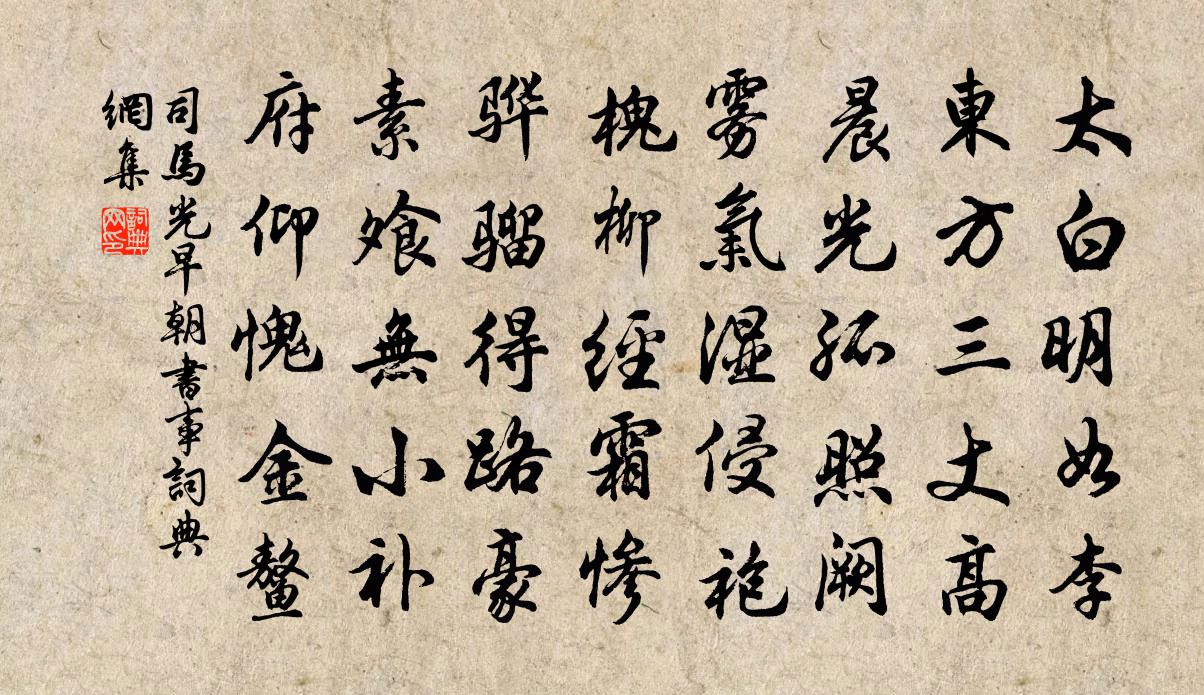 太白明如李
東方三丈高
晨光孤照闕
雾氣湿侵袍
槐柳經霜慘
骅骝得路豪
素飧無小补
府仰愧金鳌
司馬光早朝書事詞典
網集
詞典
网印